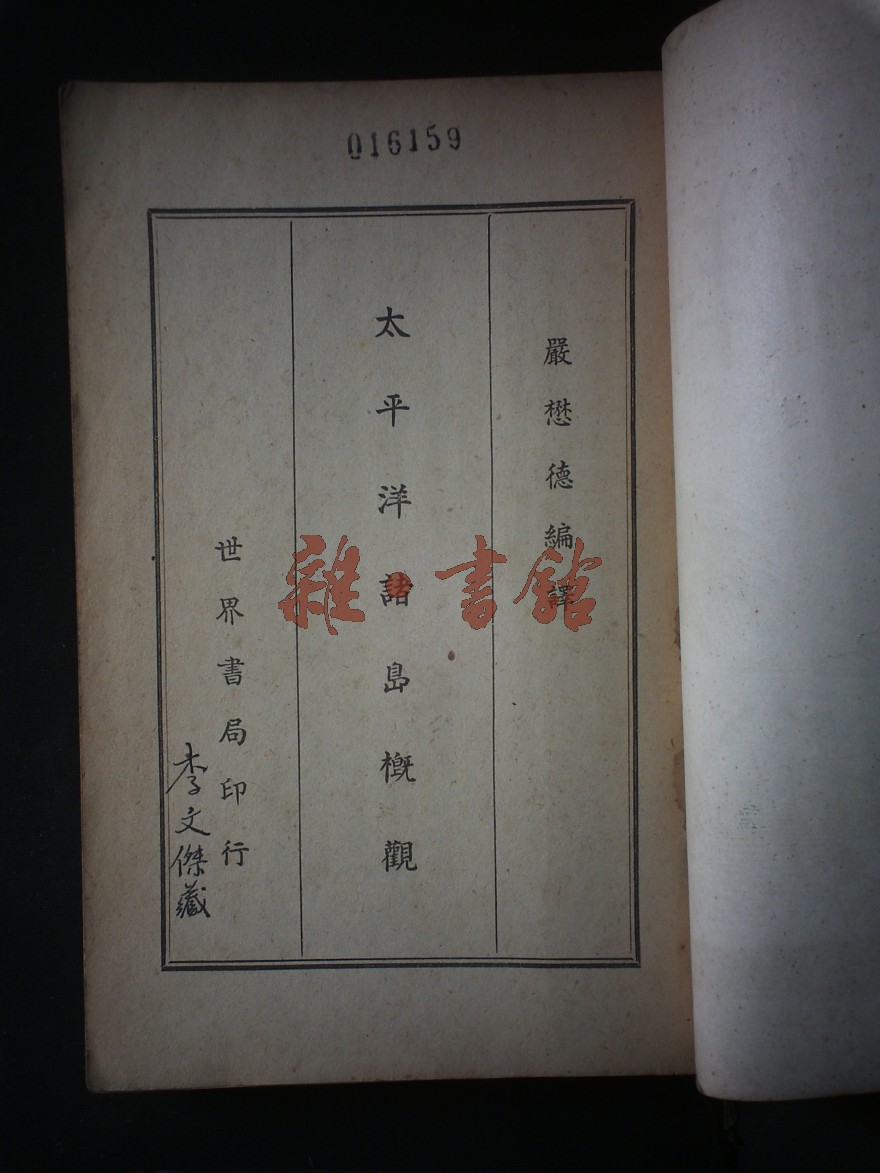 016159
嚴懋德編譯
太平洋諸島概觀
世界書局印行
李文傑藏
雜·書館